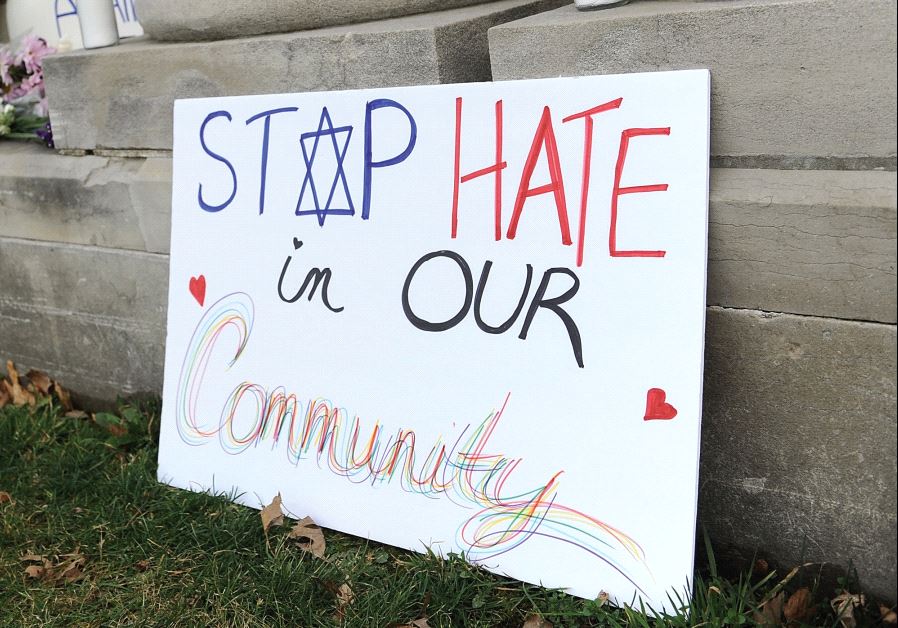 ST✡P HATE
in OUR
Community